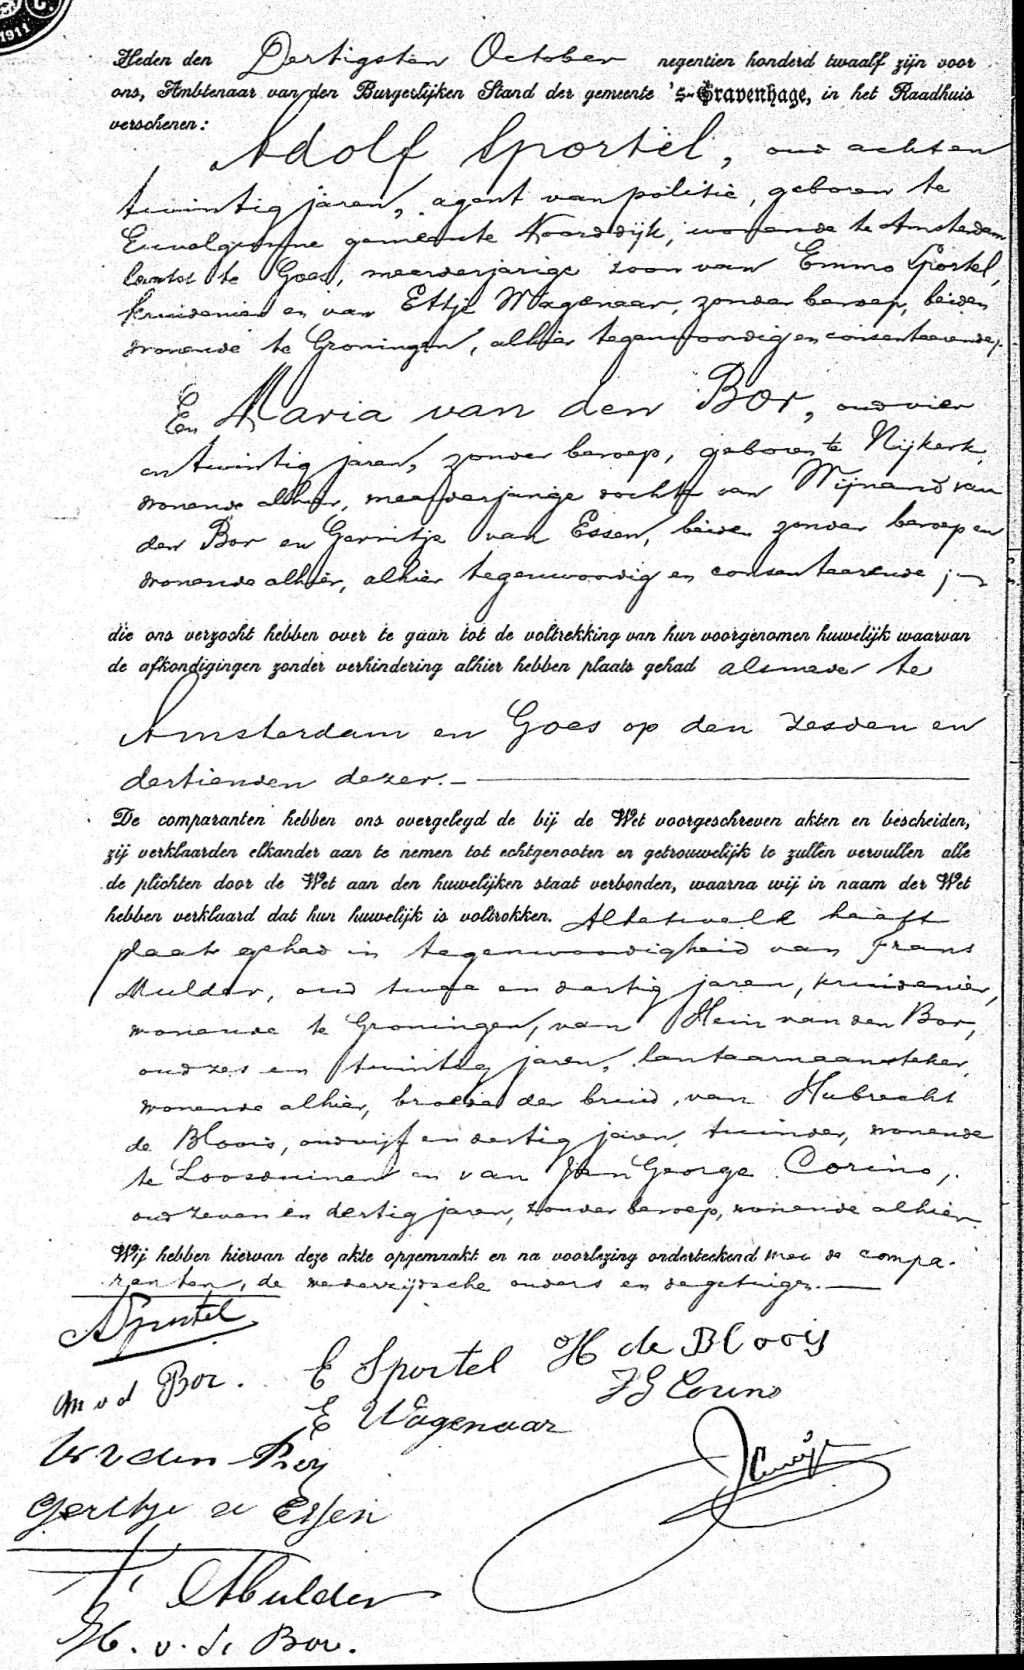 1911
Heden den Dertigsten October negentien honderd twaalf zijn voor
ons, Ambtenaar van den Burgerlijken Stand der gemeente 's-Gravenhage, in het Raadhuis
verschenen:
Adolf Sportel, oud acht en
twintig jaren, agent van politie, geboren te
gemeente Noorddijk, wonende te Amsterdam
laatst te Goes, meerderjarige zoon van Emmo Sportel,
kruidenier en van Ettje Wagenaar, zonder beroep, beiden
wonende te Groningen, alhier tegenwoordig en consenteerende;
En Maria van den Bor, oud vier
en twintig jaren, zonder beroep, geboren te Nijkerk,
wonende alhier, meerderjarige dochter van Wijnand van
den Bor en Gerritje van Essen, beiden zonder beroep en
wonende alhier, alhier tegenwoordig en consenteerende;
die ons verzocht hebben over te gaan tot de voltrekking van hun voorgenomen huwelijk waarvan
de afkondigingen zonder verhindering alhier hebben plaats gehad alsmede te
Amsterdam en Goes op den zesden en
dertienden dezer.
De comparanten hebben ons overgelegd de bij de Wet voorgeschreven akten en bescheiden,
zij verklaarden elkander aan te nemen tot echtgenooten en getrouwelijk te zullen vervullen alle
de plichten door de Wet aan den huwelijken staat verbonden, waarna wij in naam der Wet
hebben verklaard dat hun huwelijk is voltrokken. Al hetwelk heeft
plaats gehad in tegenwoordigheid van Frans
Mulder, oud twee en dertig jaren, kruidenier,
wonende te Groningen, van Hein van den Bor,
oud zes en twintig jaren, lantaarnaansteker,
wonende alhier, broeder der bruid, van Hubrecht
de Bloois, oud vijf en dertig jaren, tuinder, wonende
te Loosduinen en van Jan George Corino,
oud zeven en dertig jaren, zonder beroep, wonende alhier.
Wij hebben hiervan deze akte opgemaakt en na voorlezing onderteekend met de compa-
ranten, de wederzijdsche ouders en de getuigen.
A Sportel
M v d Bor. E Sportel H de Blooij
E Wagenaar J G Corino
W v den Bor
Gerritje v Essen
F. Mulder
H. v. d. Bor.